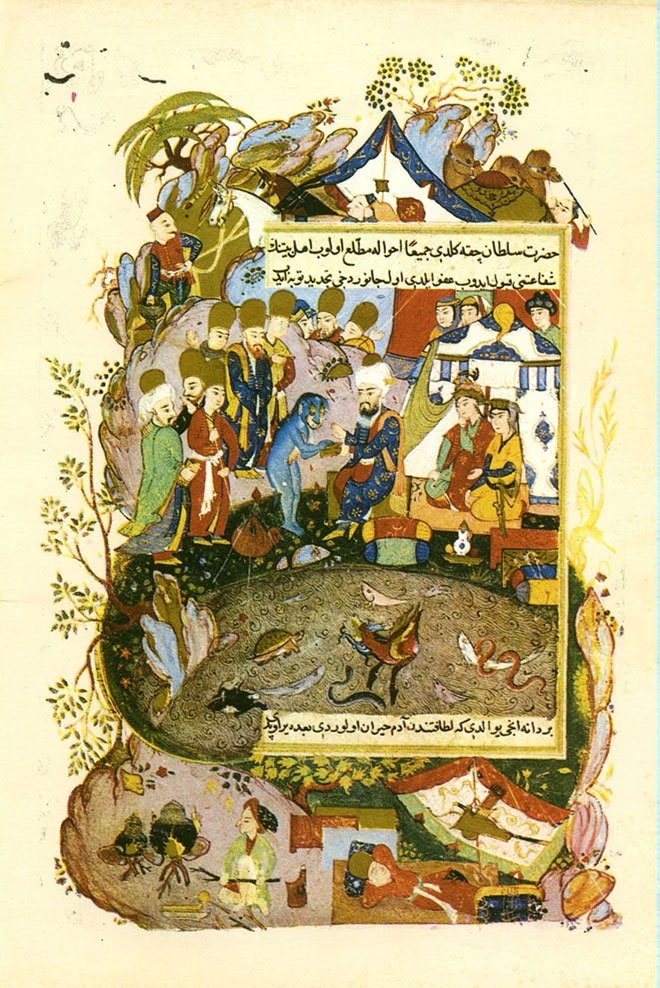 حضرت سلطان چقه کلدی جمیعا احواله مطلع اولوب اهل بیتنك
شفاعتنی قبول ایدوب عفو ایلدی اول جانور دخی تجدید توبه
بر دانه انجی که لطافتندن آدم حیران اولوردی بعده